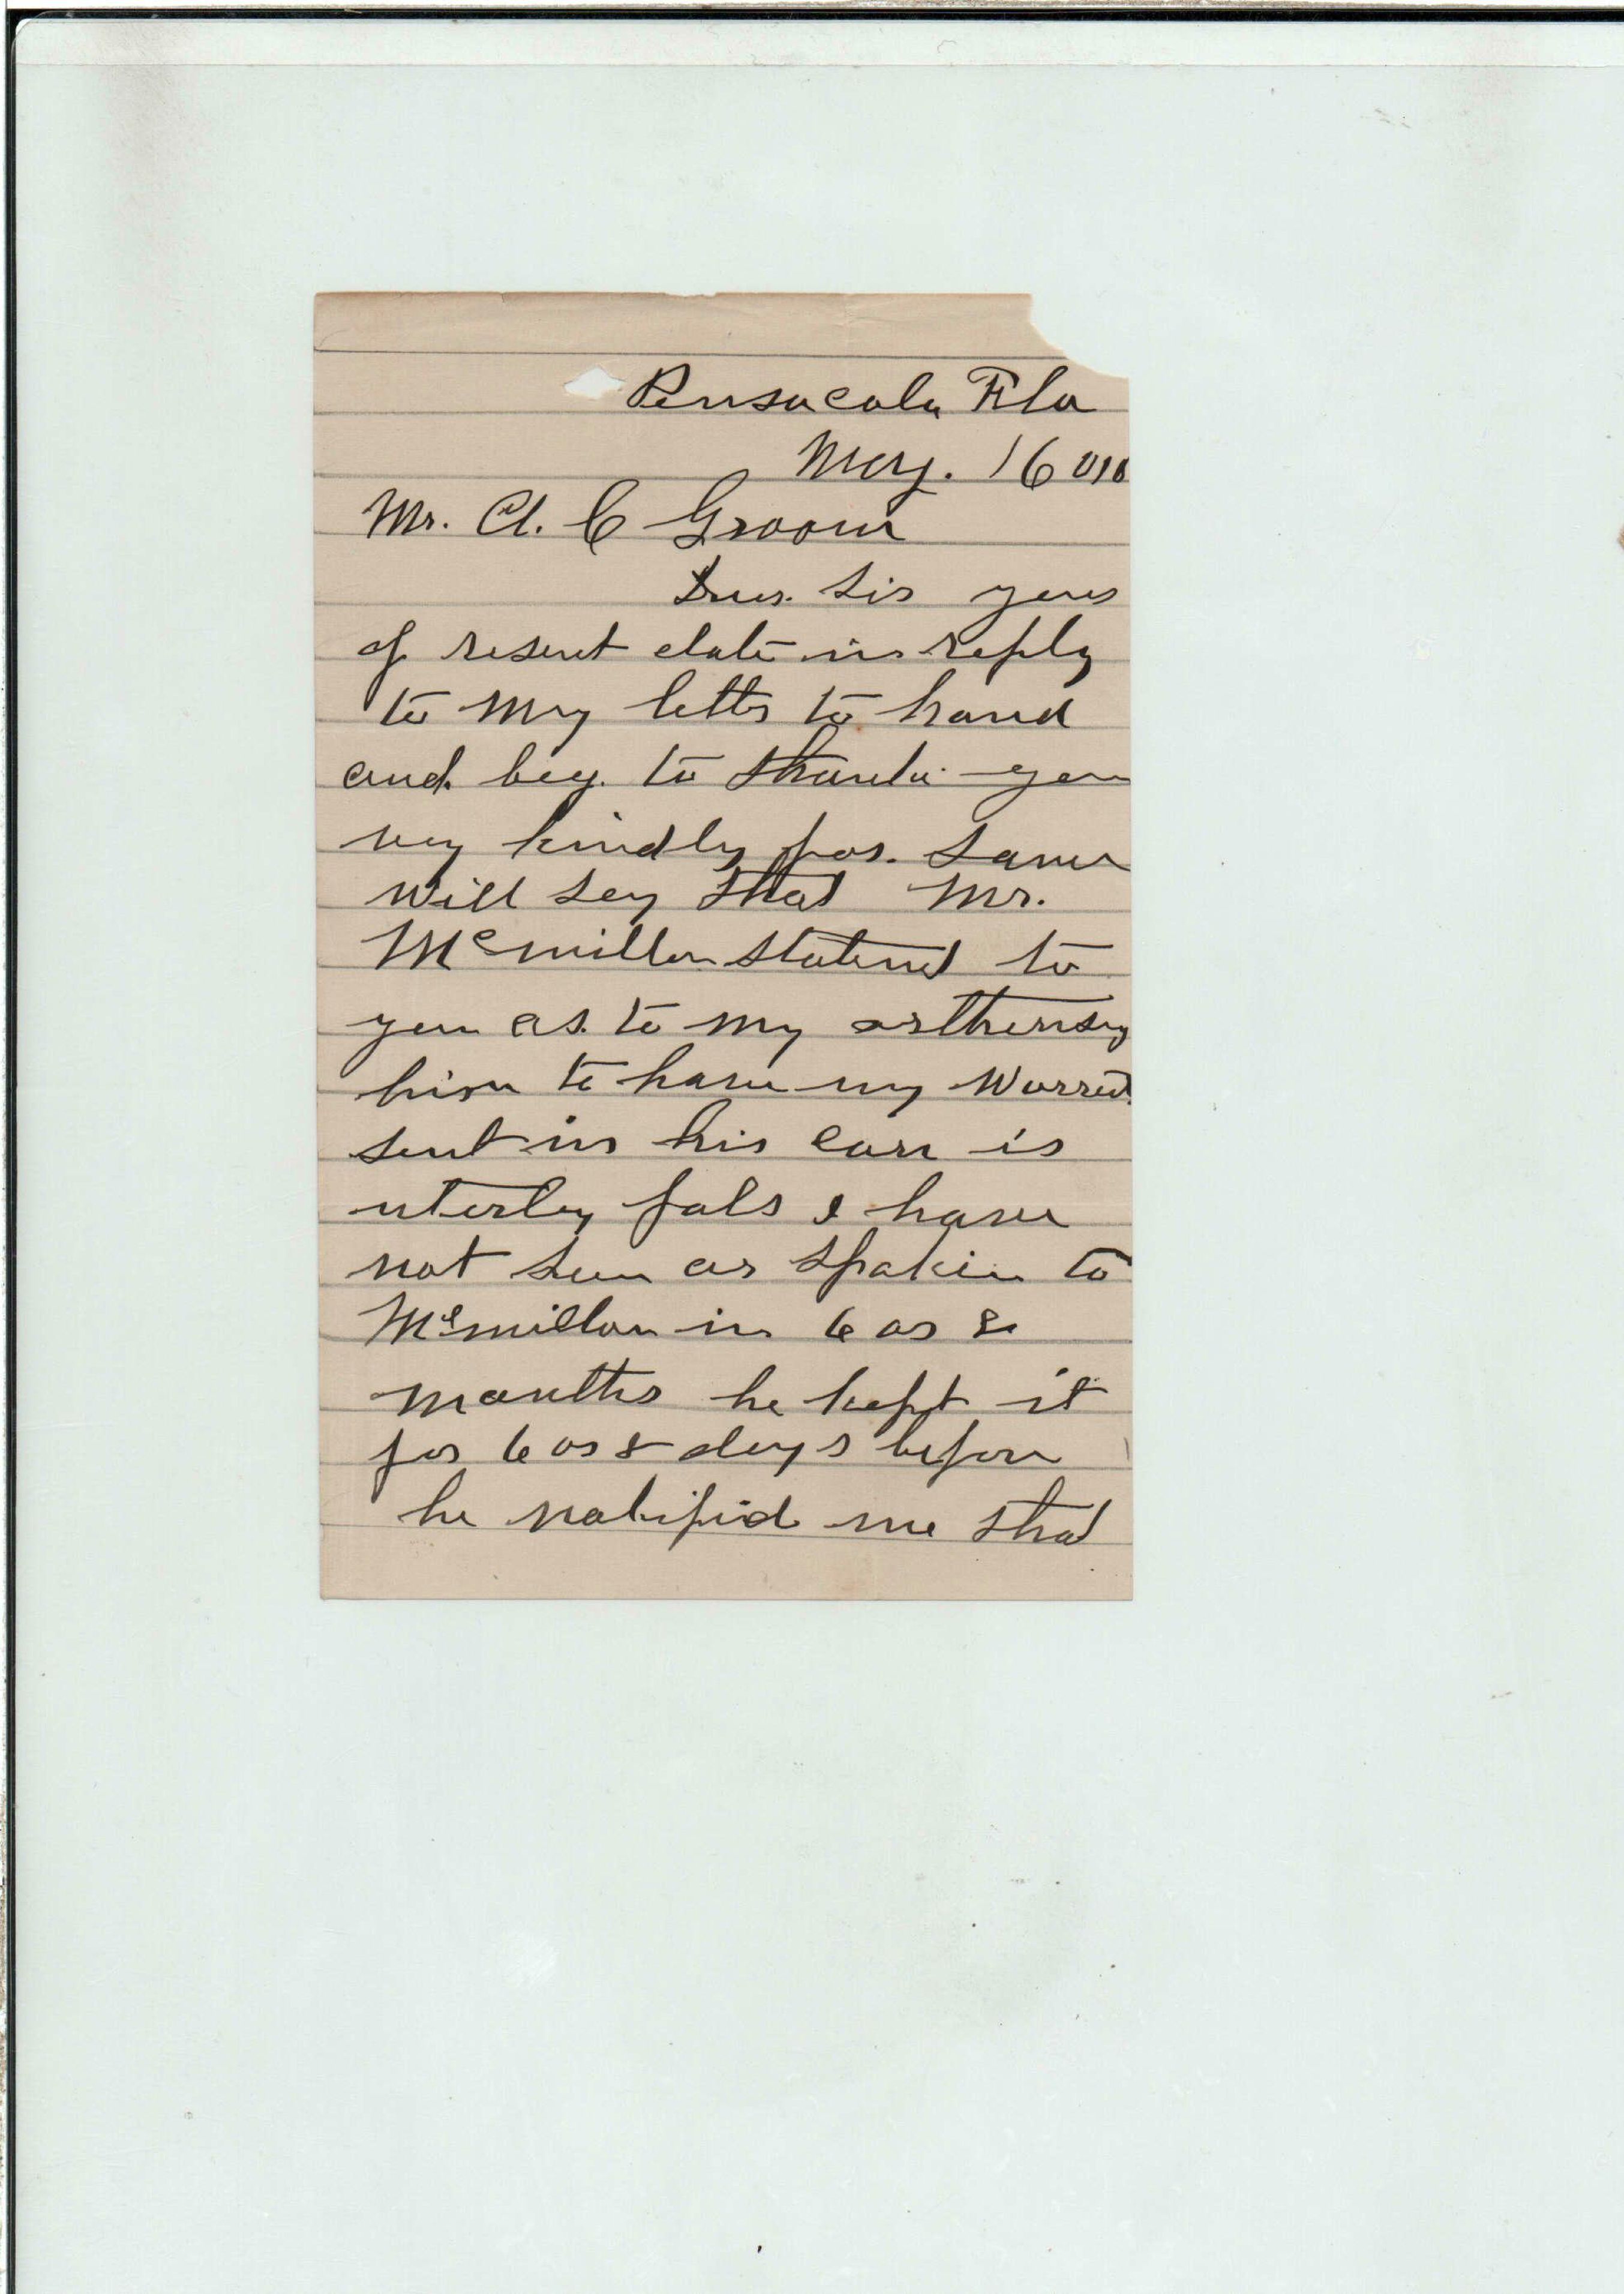 Pensacola Fla
May. 16
Mr. A. C Groom
Dear. Sir yours
of resent date in reply
to my letter to hand
and. beg. to thank you
very kindly for. same
will say that Mr.
McMillan stated to
you as. to my
him to have my Warrent
sent in his care is
uterley fals I have
not seen or spoken to
McMillan in 6 or 8
months he kept it
for 6 or 8 days before
he notifid me that